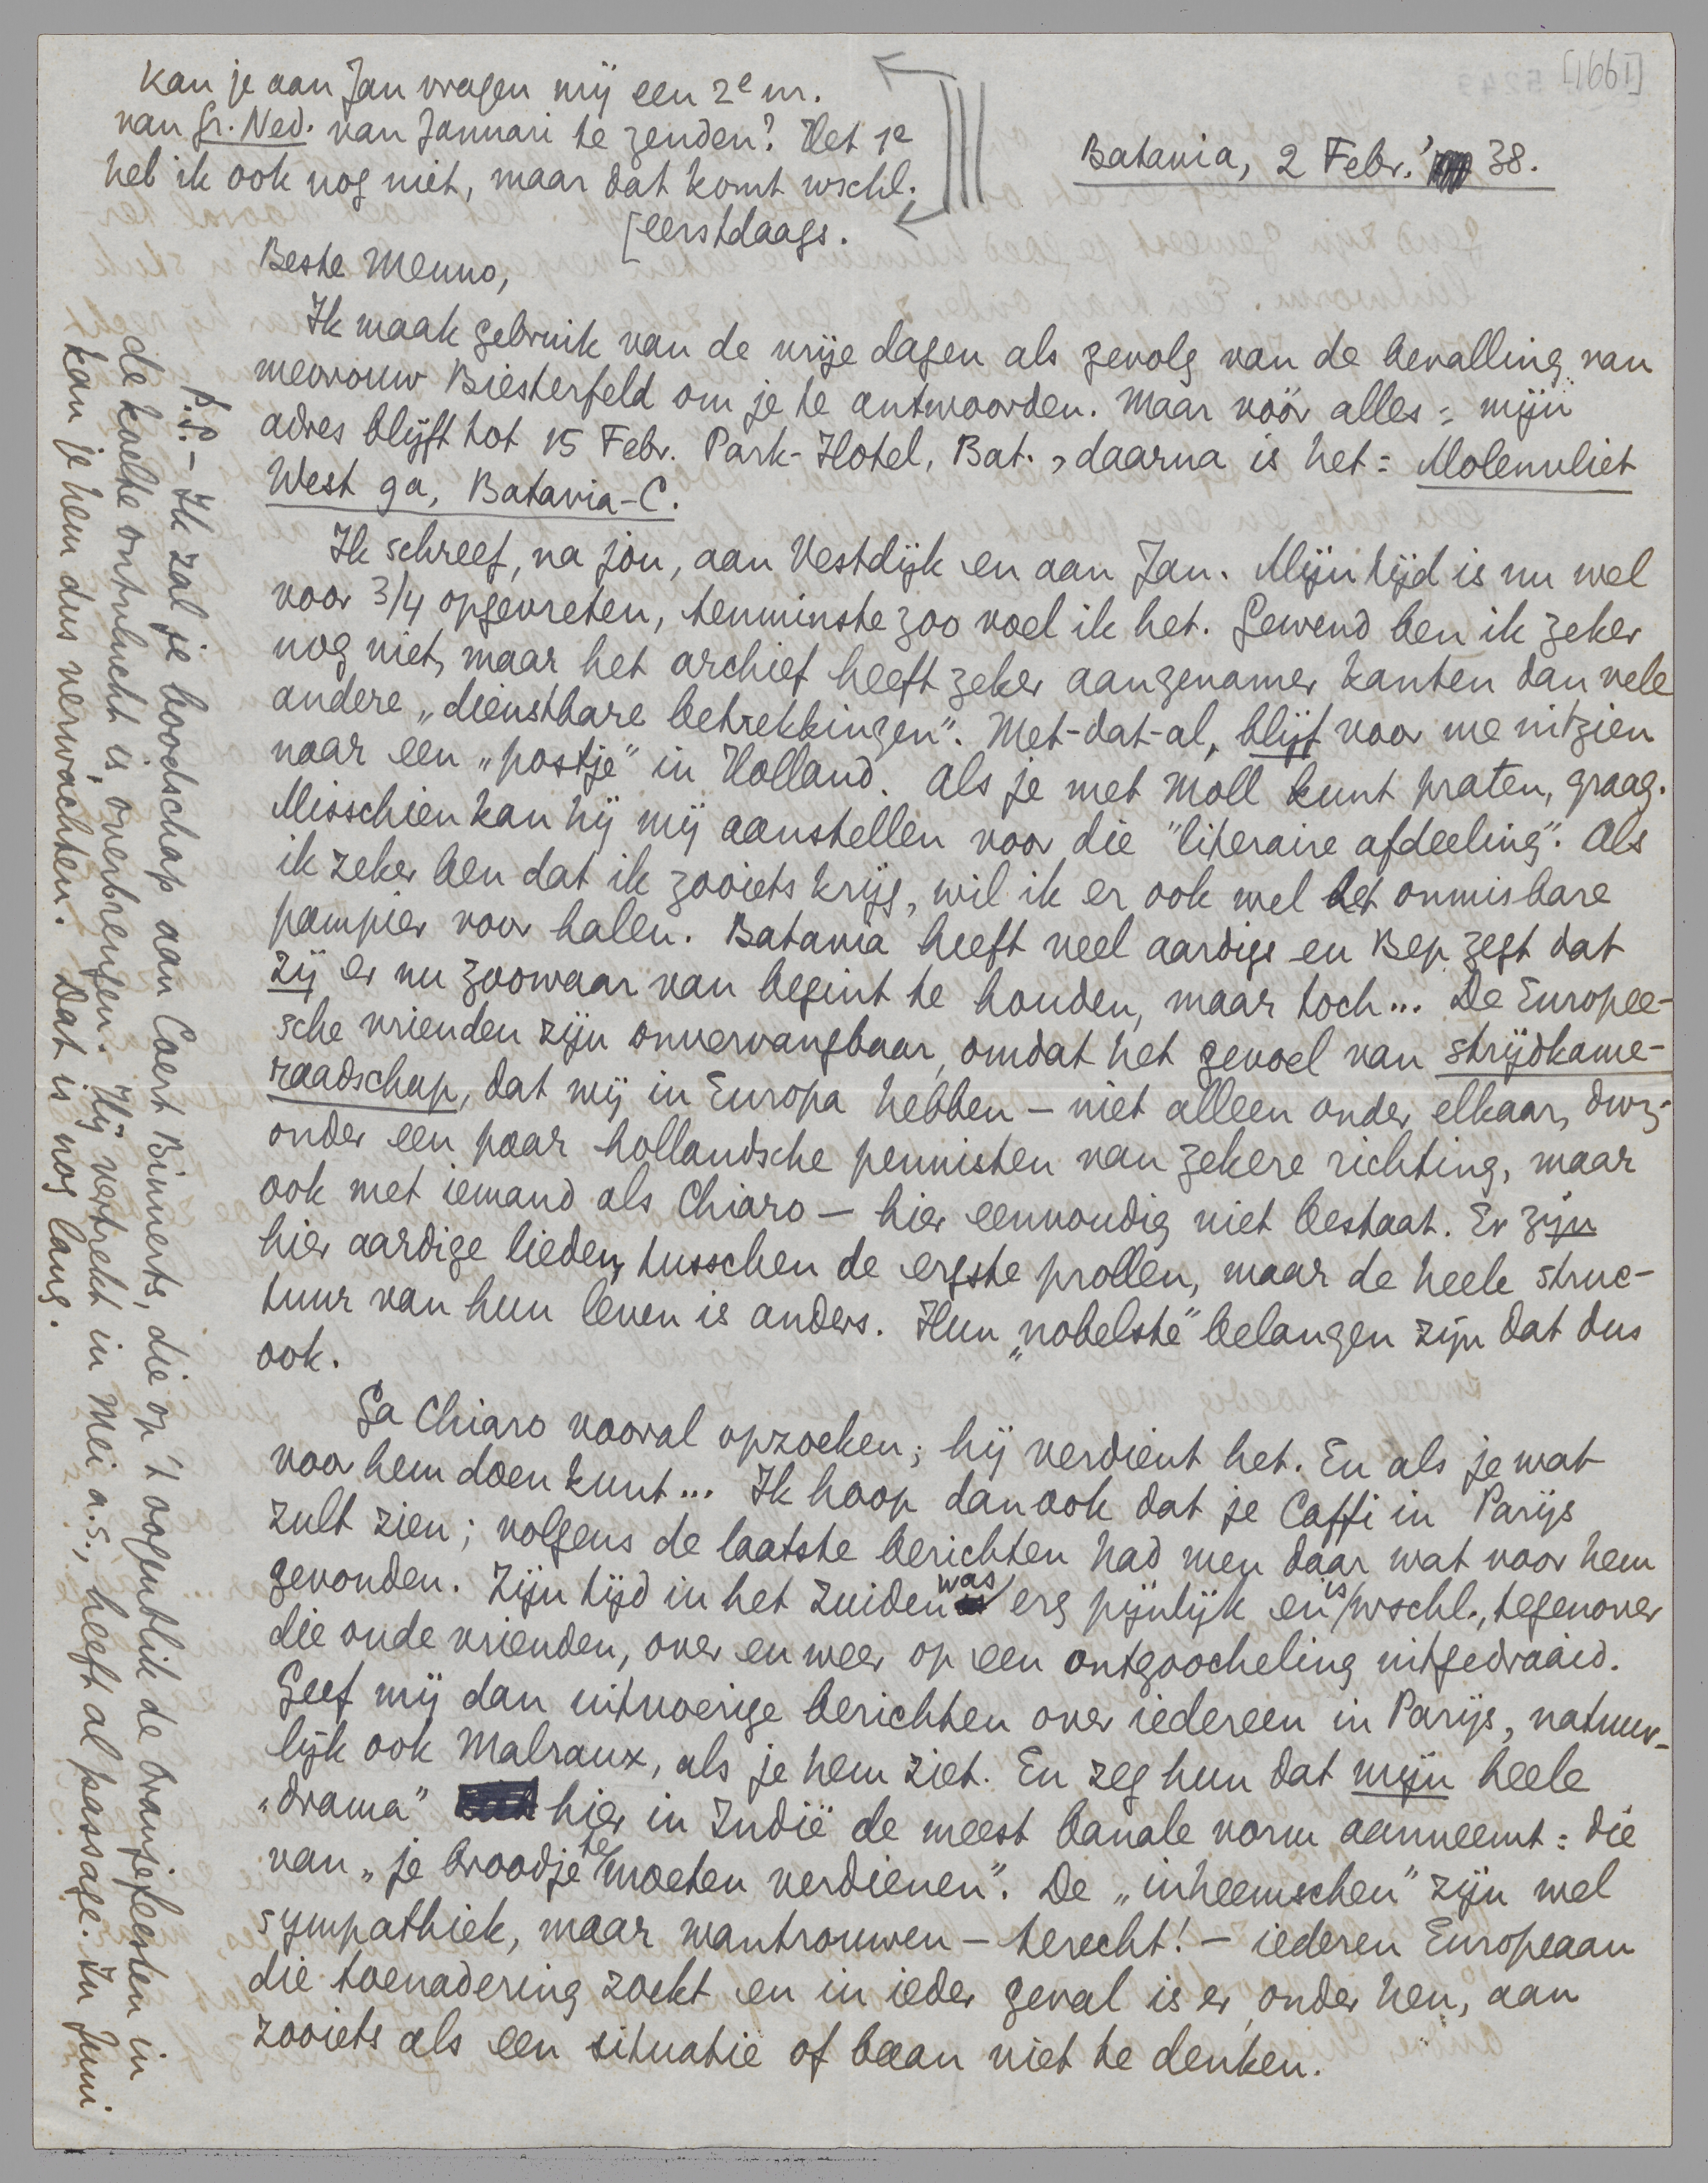 [1991]
Kan je aan Jan vragen mij een 2e nr.
van Gr. Ned. van Januari te zenden? Het 1e
heb ik ook nog niet, maar dat komt wschl.
[eerstdaags.
Batavia, 2 Febr. '38.
Beste Menno,
Ik maak gebruik van de vrije dagen als gevolg van de bevalling van
mevrouw Biesterfeld om je te antwoorden. Maar vóór alles: mijn
adres blijft tot 15 Febr. Park-Hotel, Bat., daarna is het: Molenvliet
West 9a, Batavia-C.
Ik schreef, na jou, aan Vestdijk en aan Jan. Mijn tijd is nu wel
voor 3/4 opgevreten, tenminste zoo voel ik het. Gewend ben ik zeker
nog niet, maar het archief heeft zeker aangenamer kanten dan vele
andere „dienstbare betrekkingen”. Met-dat-al, blijf voor me uitzien
naar een „postje” in Holland. Als je met Moll kunt praten, graag.
Misschien kan hij mij aanstellen voor die "literaire afdeeling". Als
ik zeker ben dat ik zooiets krijg, wil ik er ook wel het onmisbare
pampier voor halen. Batavia heeft veel aardigs en Bep zegt dat
zij er nu zoowaar van begint te houden, maar toch... De Europee-
sche vrienden zijn onvervangbaar, omdat het gevoel van strijdkame-
raadschap, dat wij in Europa hebben – niet alleen onder elkaar, dwz.
onder een paar hollandsche pennisten van zekere richting, maar
ook met iemand als Chiaro – hier eenvoudig niet bestaat. Er zijn
hier aardige lieden, tusschen de ergste prollen, maar de heele struc-
tuur van hun leven is anders. Hun „nobelste” belangen zijn dat dus
ook.
Ga Chiaro vooral opzoeken; hij verdient het. En als je wat
voor hem doen kunt... Ik hoop dan ook dat je Caffi in Parijs
zult zien; volgens de laatste berichten had men daar wat voor hem
gevonden. Zijn tijd in het Zuiden was erg pijnlijk en is wschl., tegenover
die oude vrienden, over en weer op een ontgoocheling uitgedraaid.
Geef mij dan uitvoerige berichten over iedereen in Parijs, natuur-
lijk ook Malraux, als je hem ziet. En zeg hun dat mijn heele
„drama” hier in Indië de meest banale vorm aanneemt: die
van „je broodje te moeten verdienen”. De „inheemschen” zijn wel
sympathiek, maar wantrouwen – terecht! – iederen Europeaan
die toenadering zoekt en in ieder geval is er, onder hen, aan
zooiets als een situatie of baan niet te denken.
P.S. – Ik zal je boodschap aan Coert Binnerts, die op 't oogenblik de Oranjefeesten in
de koelte ontvlucht is, overbrengen. Hij vertrekt in Mei a.s., heeft al passage. In Juni
kan je hem dus verwachten. Dat is nog lang.